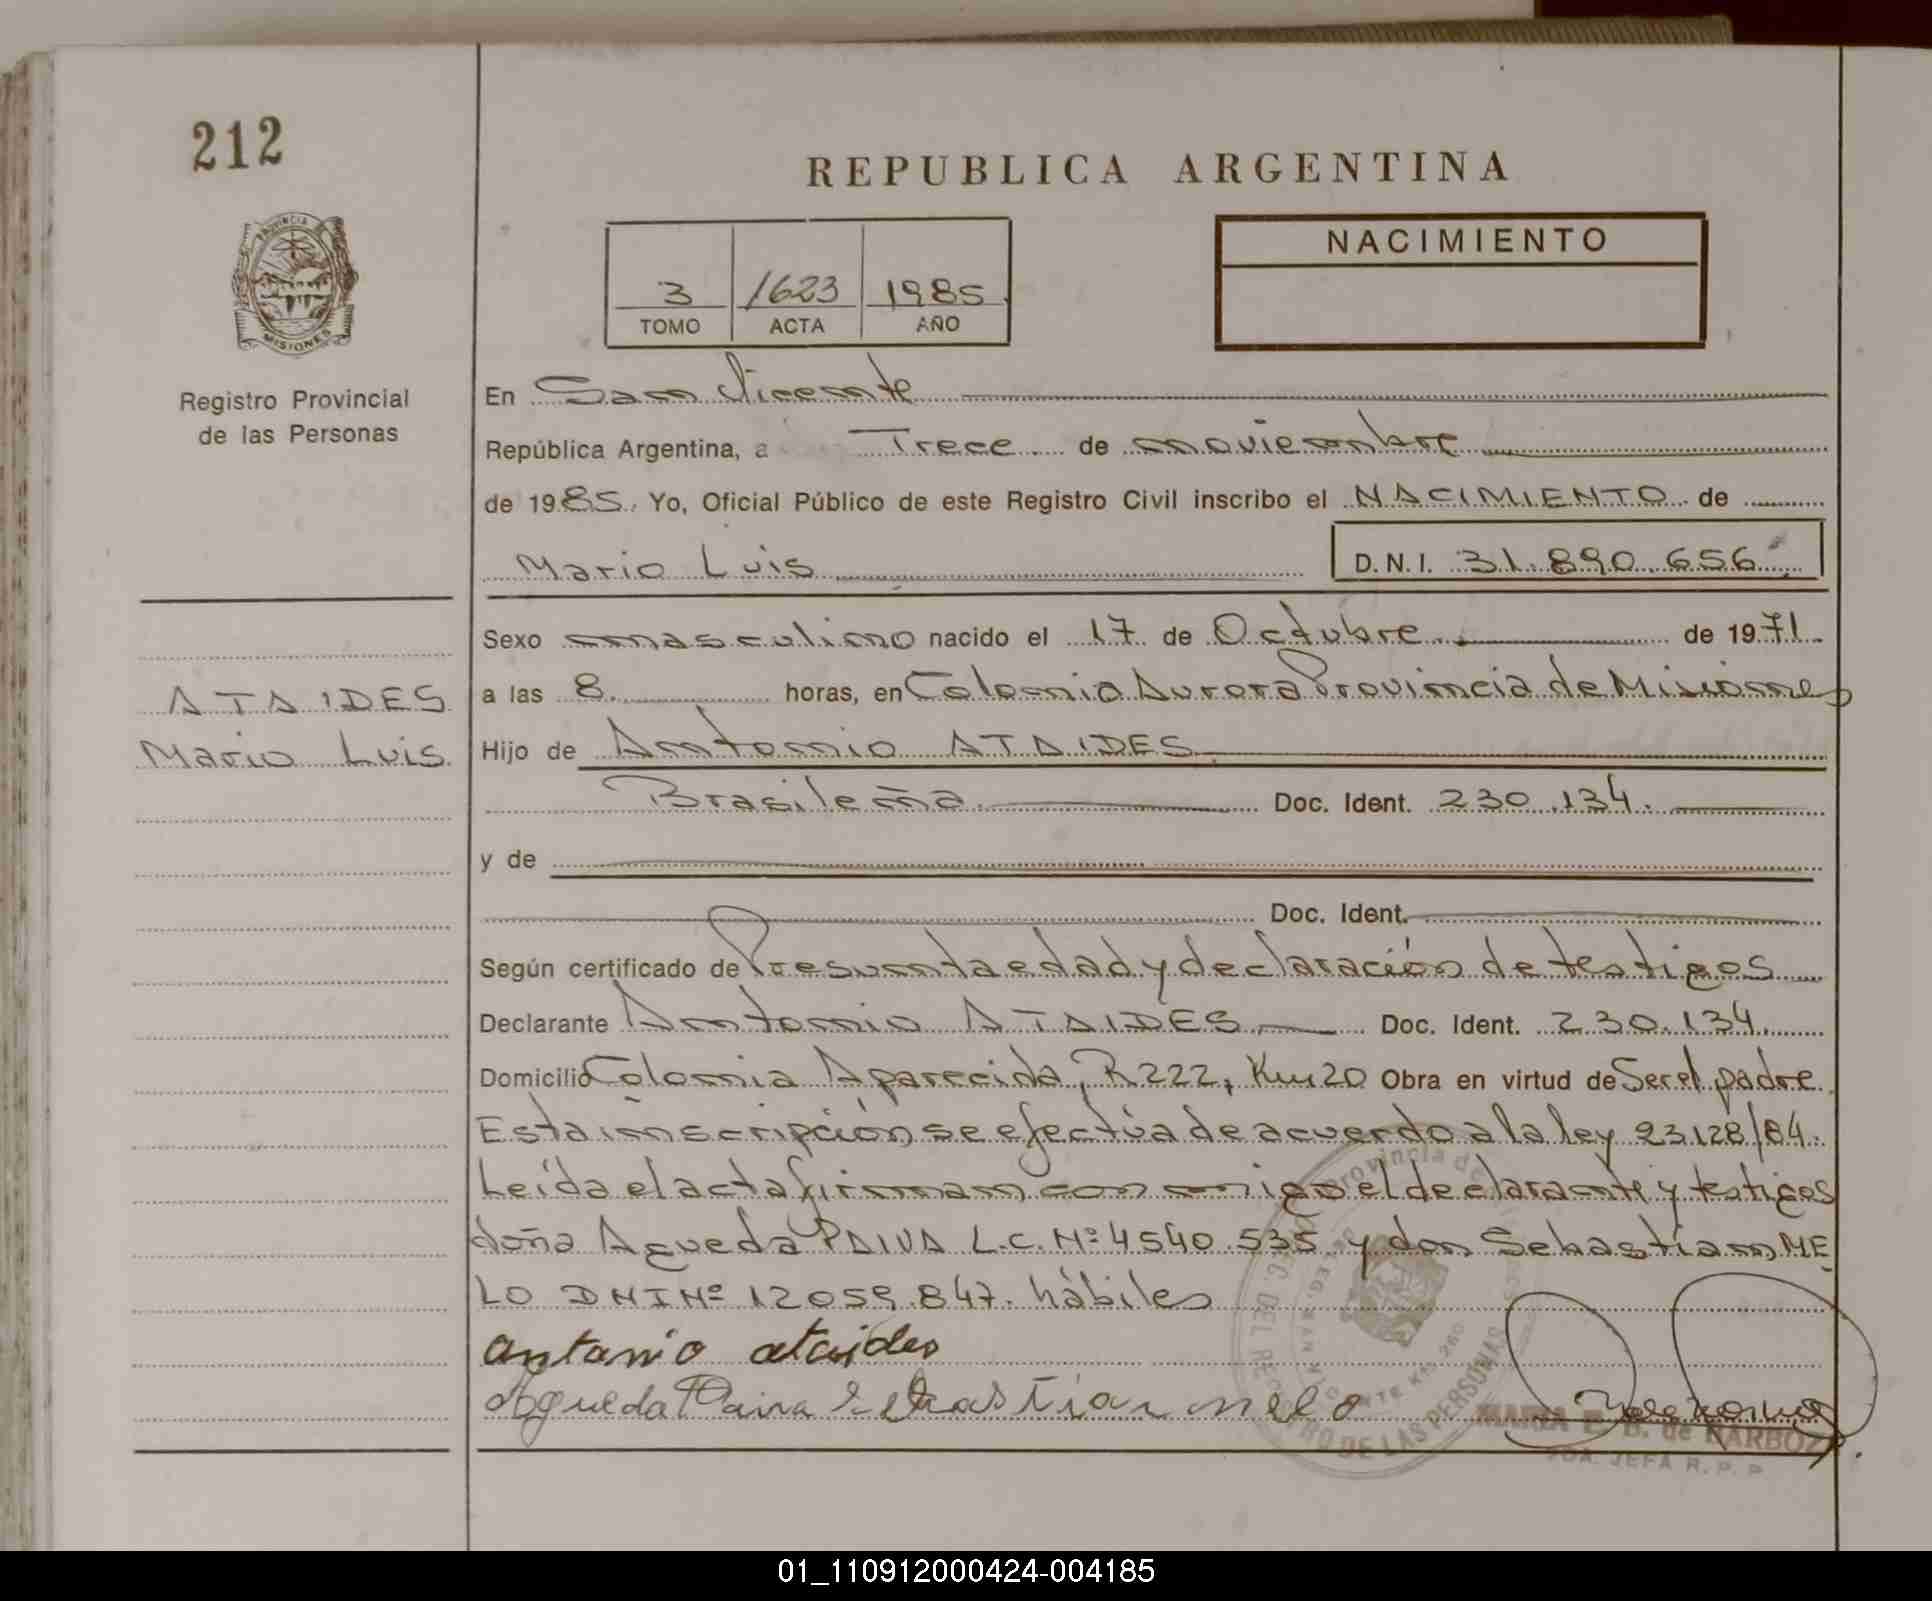 212
REPUBLICA ARGENTINA
PROVINCIA DE
MISIONES
Registro Provincial
de las Personas
3 1623 1985
TOMO ACTA AÑO
NACIMIENTO
En San Vicente
República Argentina, a Trece de noviembre
de 1985. Yo, Oficial Público de este Registro Civil inscribo el NACIMIENTO de
Mario Luis D.N.I. 31.890.656
Sexo masculino nacido el 17 de Octubre de 1971
a las 8 horas, en Colonia Aurora Provincia de Misiones
ATAIDES
Mario Luis
Hijo de Antonio ATAIDES
Brasileña Doc. Ident. 230.134.
y de
Doc. Ident.
Según certificado de Presunta edad y declaración de testigos
Declarante Antonio ATAIDES Doc. Ident. 230.134.
Domicilio Colonia Aparecida, R222, Km 20 Obra en virtud de Ser el padre.
Esta inscripción se efectúa de acuerdo a la ley 23.128/84.
Leída el acta firman conmigo el declarante y testigos
doña Agueda PAIVA L.C. Nº 4540.535 y don Sebastian ME
LO DNI Nº 12059.847. hábiles
antonio ataides
Agueda Paiva Sebastian melo
MARIA E. B. de BARBOZA
JEFA R. P. P
01_110912000424-004185